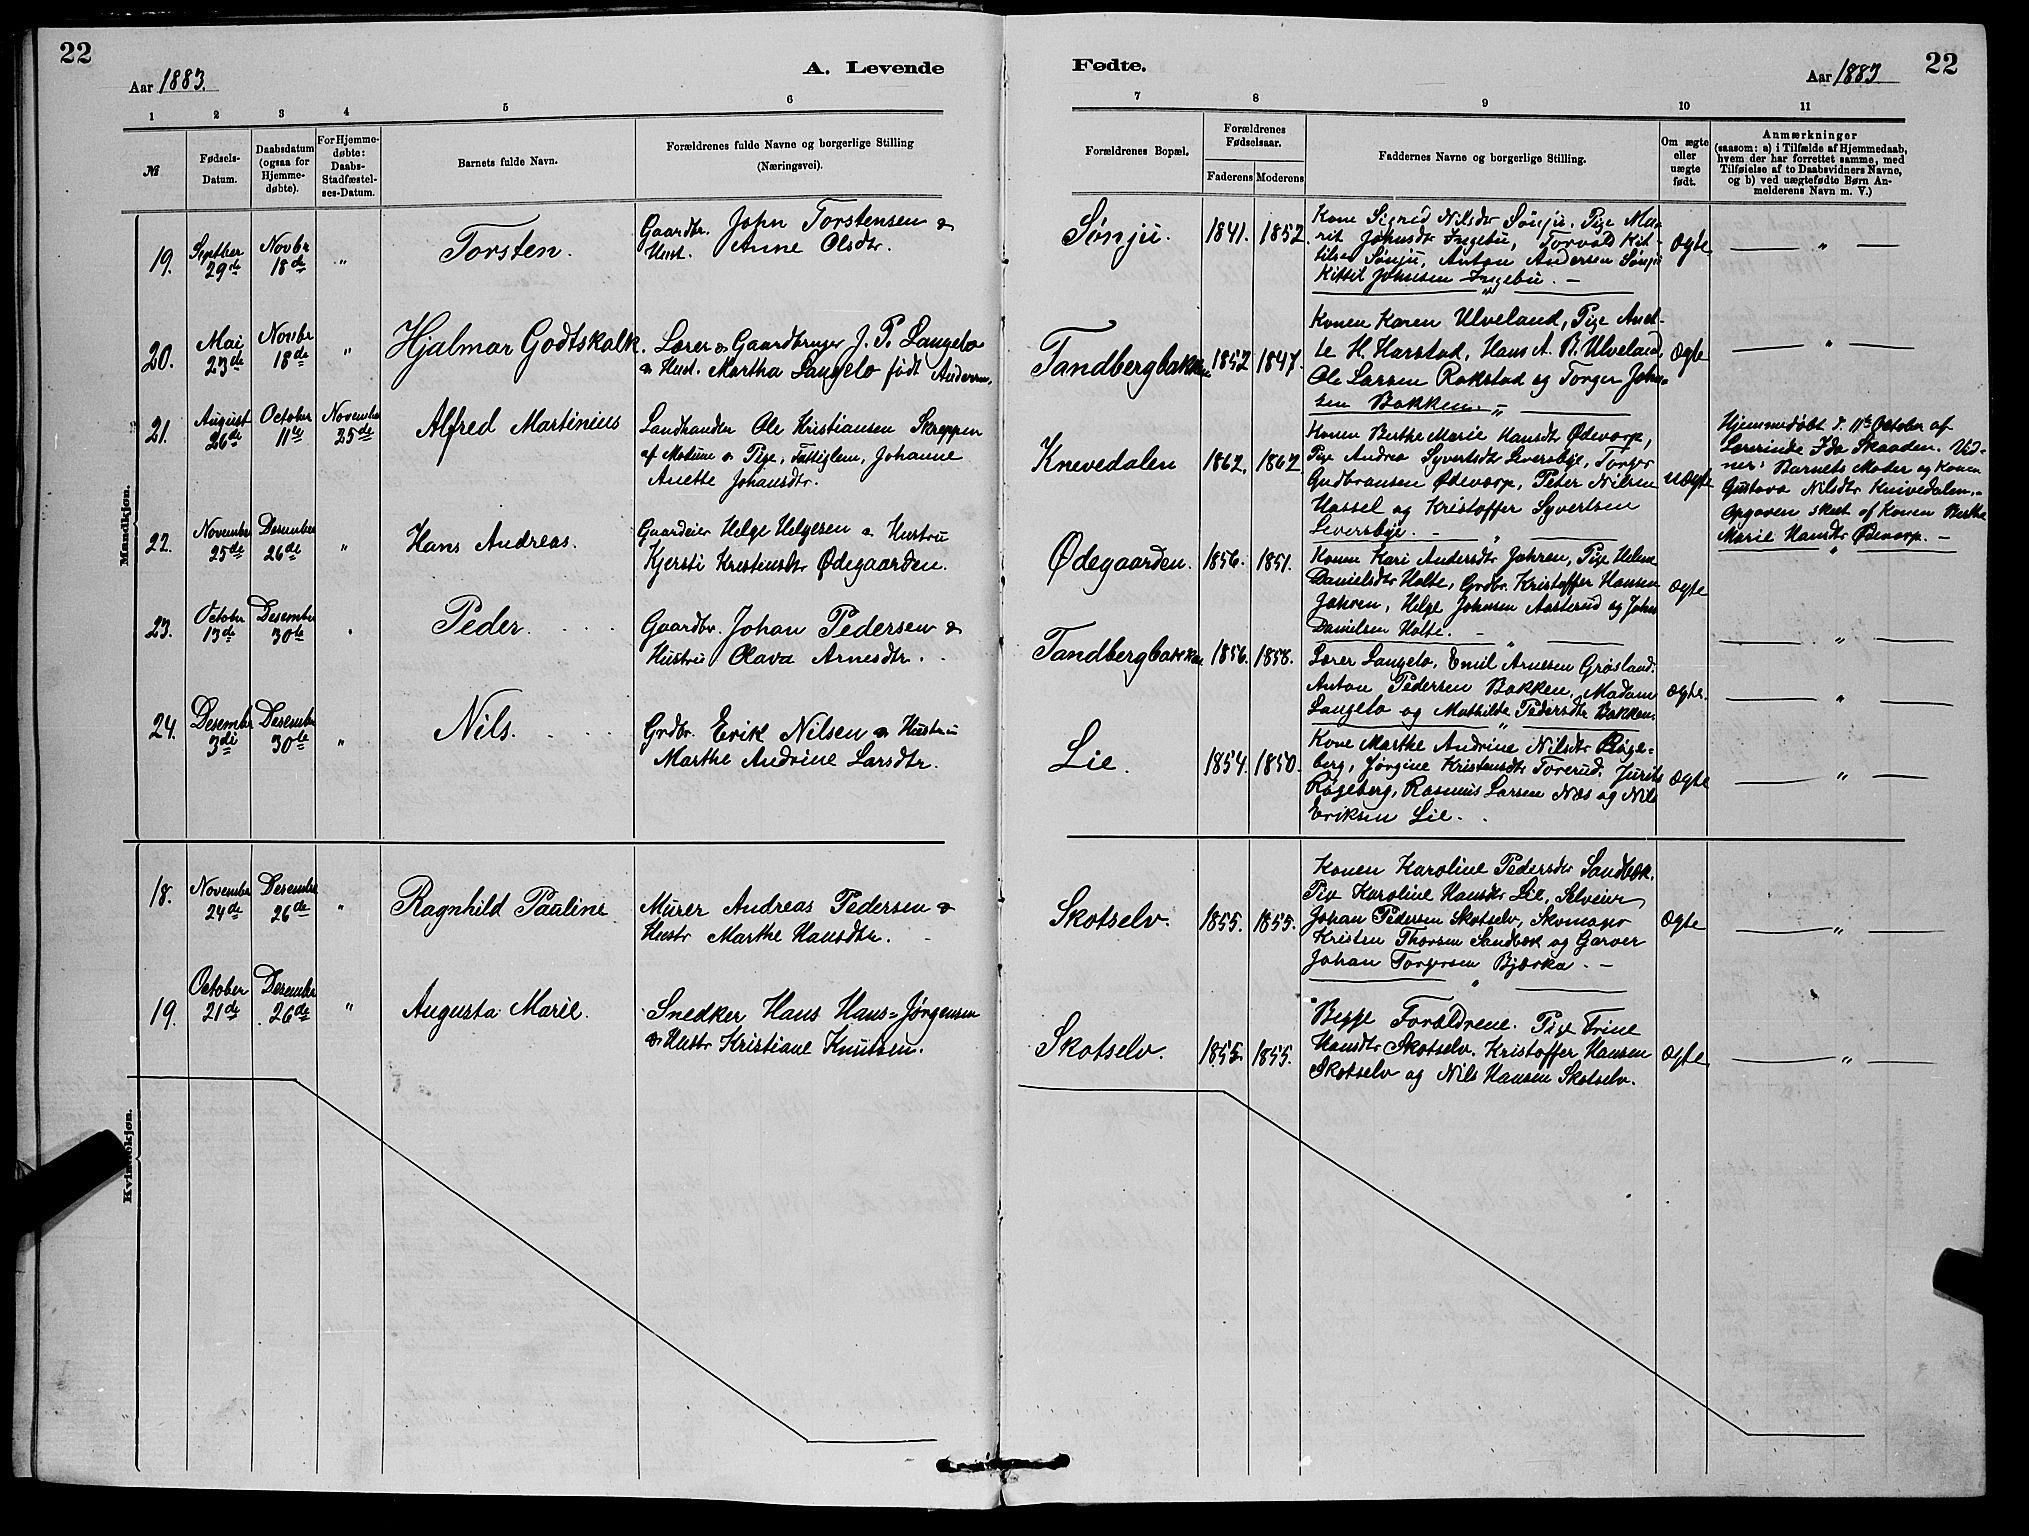 22
Aar 1883.
A. Levende
1 2 3 4 5 6
№
Fødsels-Datum.
Daabsdatum (ogsaa for Hjemmedøbte).
For Hjemmedøbte: Daabs-Stadfæstelses-Datum.
Barnets fulde Navn.
Forældrenes fulde Navne og borgerlige Stilling
(Næringsvei).
Mandkjøn.
19. Septber 29de Novbr 18de " Torsten.
Gaardbr. John Torstensen &
Hust. Anne Olsdtr.
20. Mai 23de Novbr 18de " Hjalmar Godtskalk.
Lærer & Gaardbruger J. P. Langelo
& Hust. Martha Langelo født Andersen.
21. August 26de October 11te November 25de Alfred Martinius
Landhandler Ole Kristiansen Skreppen
af Modum & Pige, Fattiglem, Johanne
Anette Johansdtr.
22. November 25de Desember 26de " Hans Andreas.
Gaardeier Helge Helgesen & Hustru
Kjersti Kristensdtr Ødegaarden.
23. October 13de Desember 30te " Peder.
Gaardbr. Johan Pedersen &
Hustru Olava Arnesdtr.
24. Desembr 3die Desember 30te " Nils.
Grdbr. Erik Nilsen & Hustru
Marthe Andrine Larsdtr.
Kvindekjøn.
18. November 24de Desember 26de " Ragnhild Pauline
Murer Andreas Pedersen &
Hustr Marthe Hansdtr.
19. October 21de Desember 26de " Augusta Marie.
Snedker Hans Hans-Jørgensen
& Hustr Kristiane Knutsen.
Fødte.
Aar 1883
22
7 8 9 10 11
Forældrenes Bopæl.
Forældrenes Fødselsaar.
Faderens Moderens
Faddernes Navne og borgerlige Stilling.
Om ægte eller uægte født.
Anmærkninger
(saasom: a) i Tilfælde af Hjemmedaab,
hvem der har forrettet samme, med
Tilføielse af to Daabsvidners Navne,
og b) ved uægtefødte Børn An-
melderens Navn m. V.)
Sønju. 1841. 1852.
Kone Sigrid Nilsdtr Sønju, Pige Ma-
rit Johnsdtr Ingebu, Torvald Kit-
tilsen Sønju, Anton Andersen Sønju
Kittil Johnsen Ingebu.
Ægte "
Tandbergbakken 1852 1847.
Konen Karen Ulveland, Pige Anet-
te H. Harstad, Hans A. B. Ulveland,
Ole Larsen Rakstad og Torger John-
sen Bakken.
Ægte "
Knevedalen 1862. 1862
Konen Berthe Marie Hansdtr Ødevorp,
Pige Andrea Syvertsdtr Leversbye, Torger
Gudbransen Ødevorp, Peter Nilsen
Hassel og Kristoffer Syvertsen
Leversbye.
uægte
Hjemmedøbt d. 11te October af
Lærerinde Ida Skaaden. Vid-
ner: Barnets Moder og Konen
Gustava Nilsdtr Knivedalen.
Opgaven skeet af Konen Berthe
Marie Hansdtr Ødevorp.
Ødegaarden. 1856. 1851.
Konen Kari Andersdtr Jahren, Pige Helene
Danielsdtr Holte, Grdbr. Kristoffer Hansen
Jahren, Helge Johnsen Aasterud og John
Danielsen Holte.
Ægte "
Tandbergbakken 1856. 1858.
Lærer Langelo, Emil Arnesen Grøsland.
Anton Pedersen Bakken, Madam
Langelo og Mathilde Pedersdtr Bakken.
Ægte. "
Lie. 1854. 1850.
Kone Marthe Andrine Nilsdtr Røge-
berg, Jørgine Kristensdtr Torerud,
Røgeberg, Rasmus Larsen Næs og Nils
Eriksen Lie.
Ægte "
Skotselv. 1855. 1855.
Konen Karoline Pedersdtr Sandbæk.
Pige Karoline Hansdtr Lie, Selveier
Johan Pedersen Skotselv, Skomager
Kristen Thorsen Sandbæk og Garver
Johan Torgersen Bjerka.
Ægte "
Skotselv. 1855. 1855.
Begge Forældrene. Pige Trine
Hansdtr Skotselv. Kristoffer Hansen
Skotselv og Nils Hansen Skotselv.
Ægte "